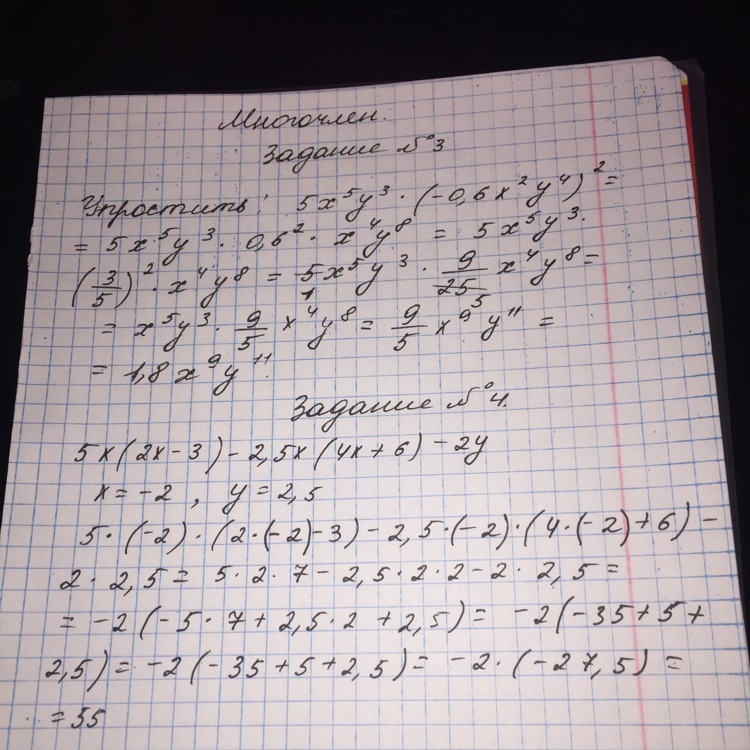 Многочлен.
Задание №3
Упростить: 5x⁵y³·(-0,6x²y⁴)²=
= 5x⁵y³·0,6²·x⁴y⁸ = 5x⁵y³·
(3/5)²·x⁴y⁸ = 5x⁵y³·9/25x⁴y⁸=
1 5
= x⁵y³·9/5x⁴y⁸ = 9/5x⁹y¹¹ =
= 1,8x⁹y¹¹.
Задание №4.
5x(2x-3)-2,5x(4x+6)-2y
x=-2, y=2,5
5·(-2)·(2·(-2)-3)-2,5·(-2)·(4·(-2)+6)-
2·2,5= 5·2·7-2,5·2·2-2·2,5=
= -2(-5·7+2,5·2+2,5)= -2(-35+5+
2,5)= -2(-35+5+2,5)= -2·(-27,5)=
=55